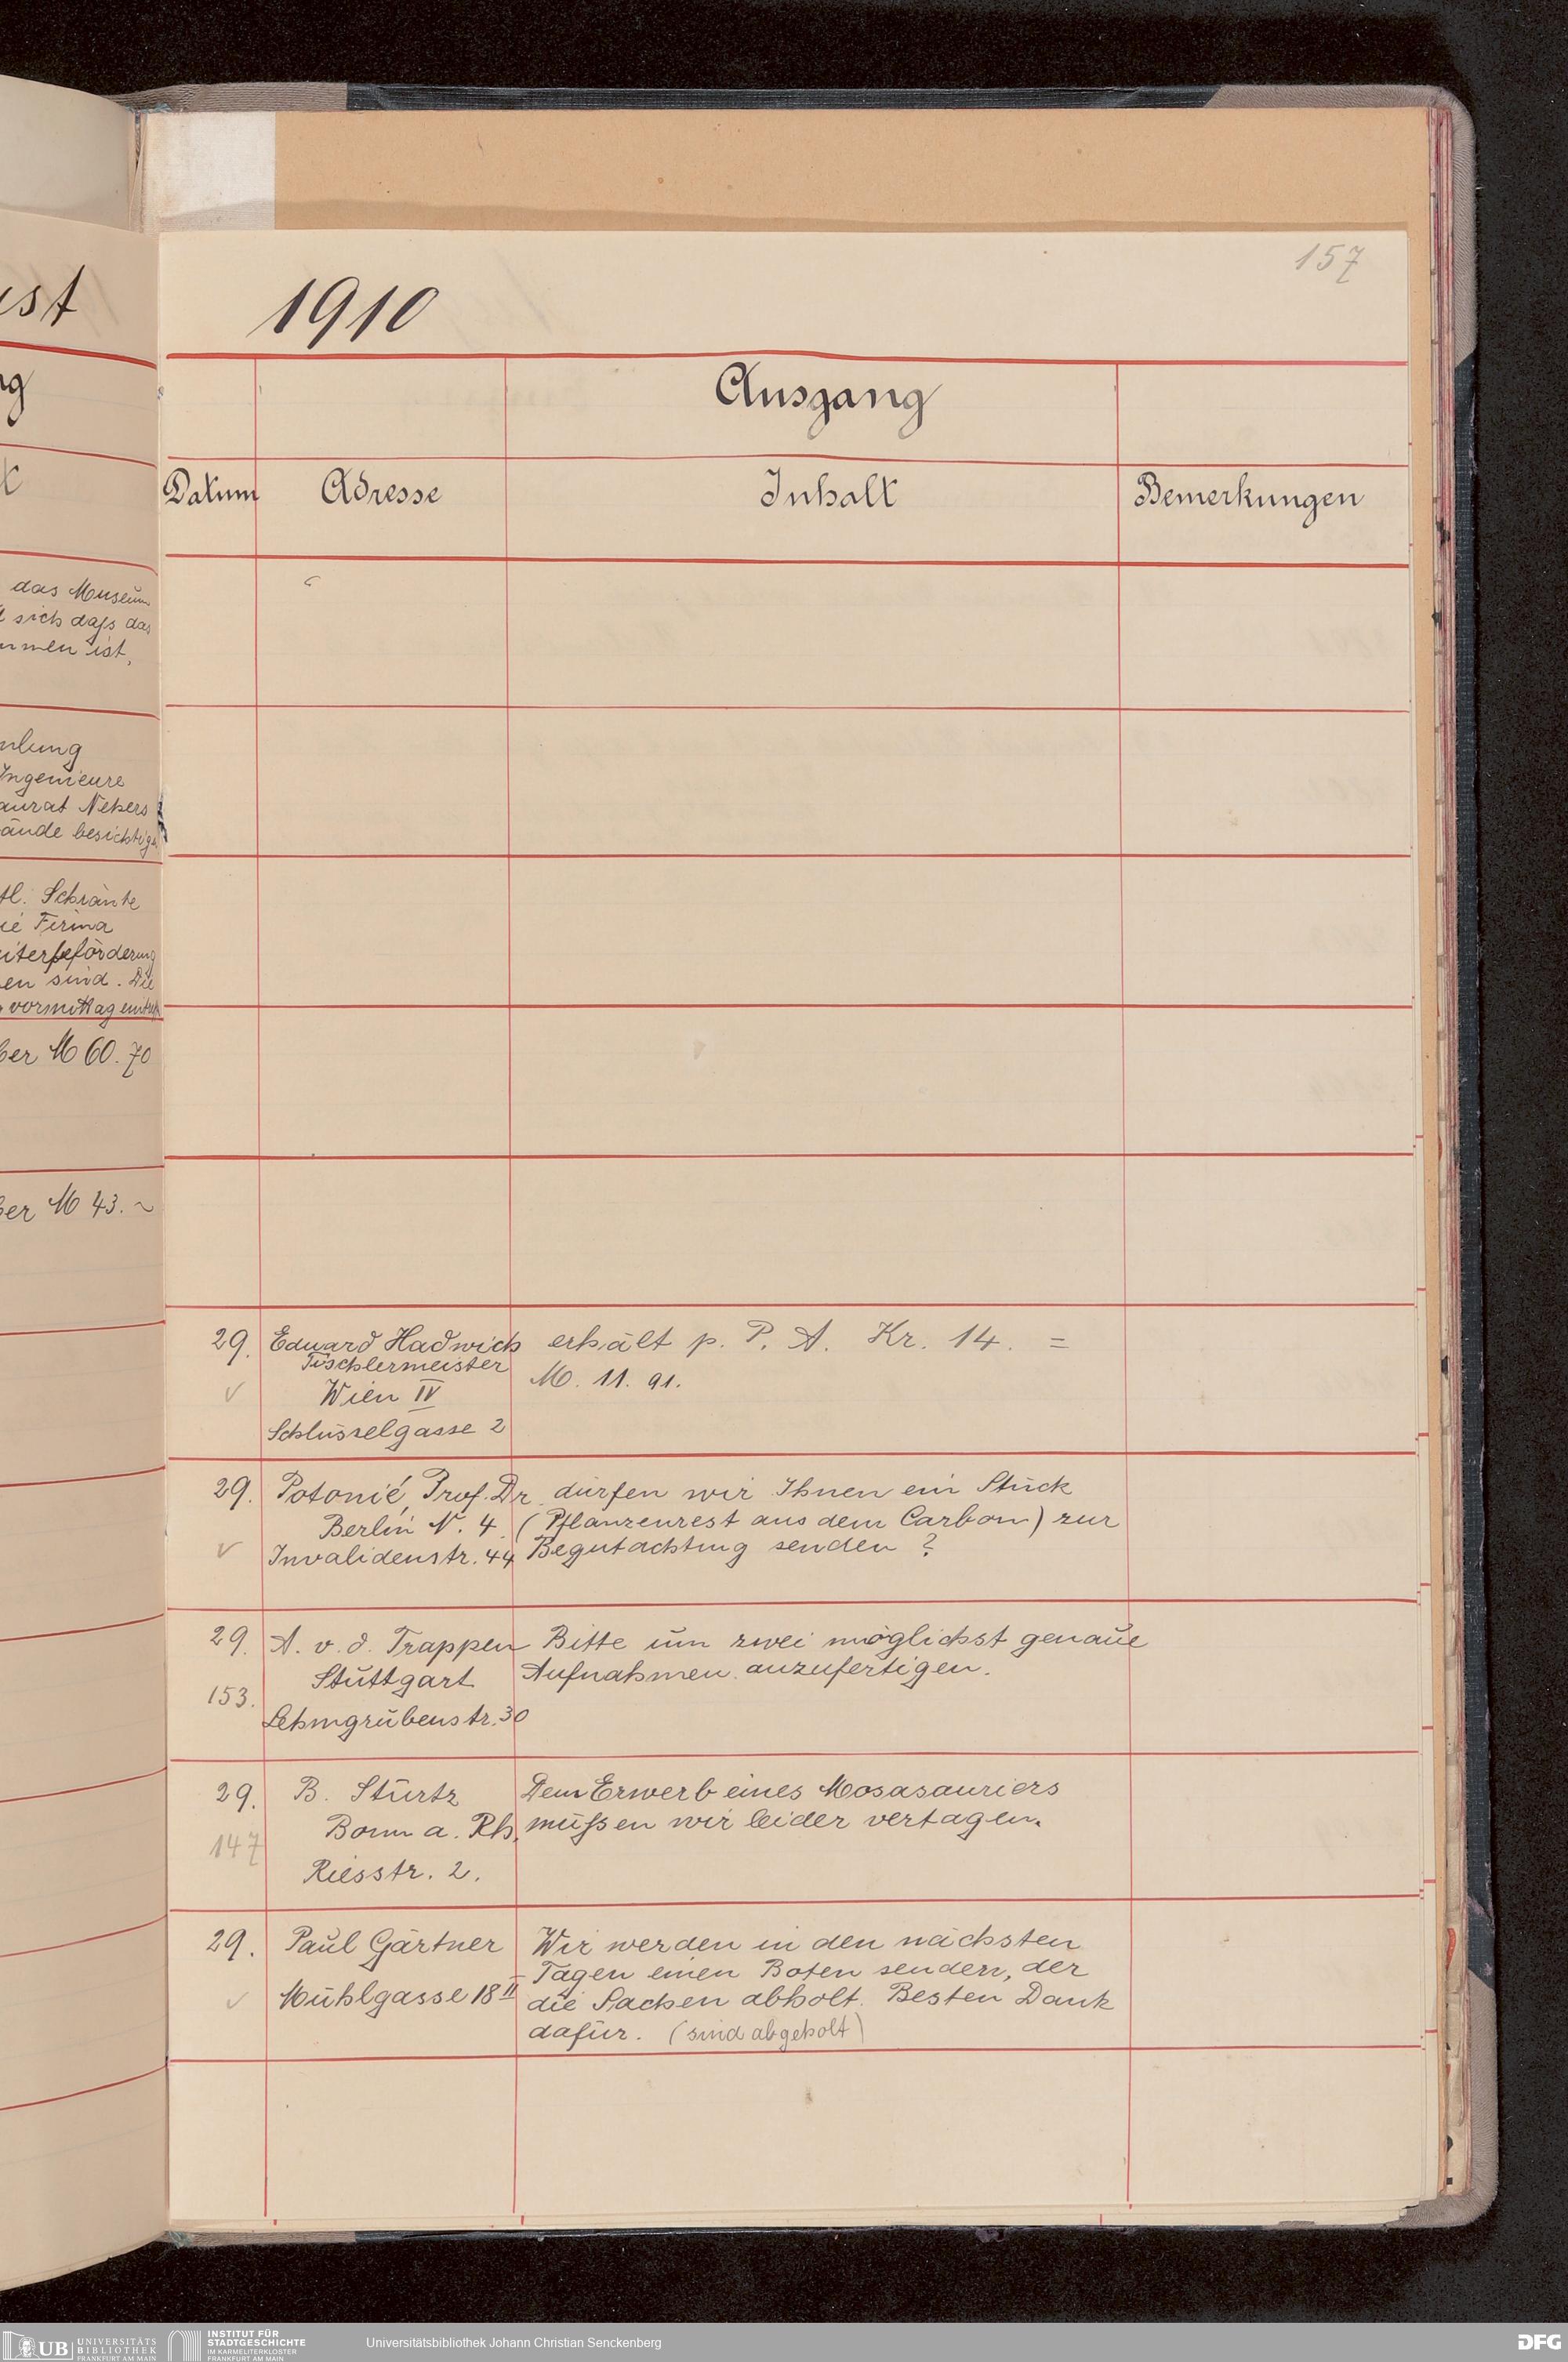 157
1910
Ausgang
Datum Adresse Inhalt Bemerkungen
das Museum
sich daß das
ist,
Ingenieure
Schränke
Firma
sind. Die
M 60.70
M 43. ~
29. Eduard Hadwich erhält p. P. A. Kr. 14. =
Tischlermeister M. 11. 91.
✓ Wien IV
Schlüsselgasse 2
29. Potonié, Prof. Dr. dürfen wir Ihnen ein Stück
Berlin N. 4. (Pflanzenrest aus dem Carbon) zur
✓ Invalidenstr. 44 Begutachtung senden ?
29. A. v. d. Trappen Bitte um zwei möglichst genaue
Stuttgart Aufnahmen anzufertigen.
153.
Lehmgrubenstr. 30
29. B. Stürtz Den Erwerb eines Mosasauriers
Bonn a. Rh. müßen wir leider vertagen.
147
Riesstr. 2.
29. Paul Gärtner Wir werden in den nächsten
Tagen einen Boten senden, der
✓ Mühlgasse 18 II die Sachen abholt. Besten Dank
dafür. (sind abgeholt)
UB UNIVERSITÄTS
BIBLIOTHEK
FRANKFURT AM MAIN
INSTITUT FÜR
STADTGESCHICHTE
IM KARMELITERKLOSTER
FRANKFURT AM MAIN
Universitätsbibliothek Johann Christian Senckenberg
DFG